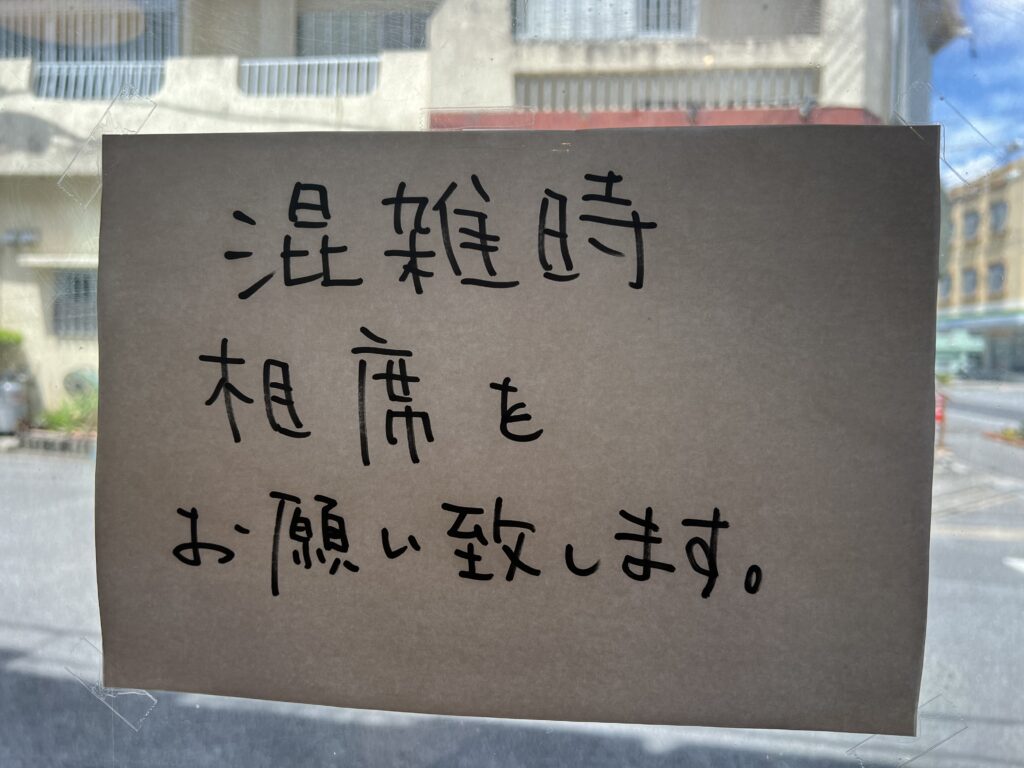 混雑時
相席を
お願い致します。